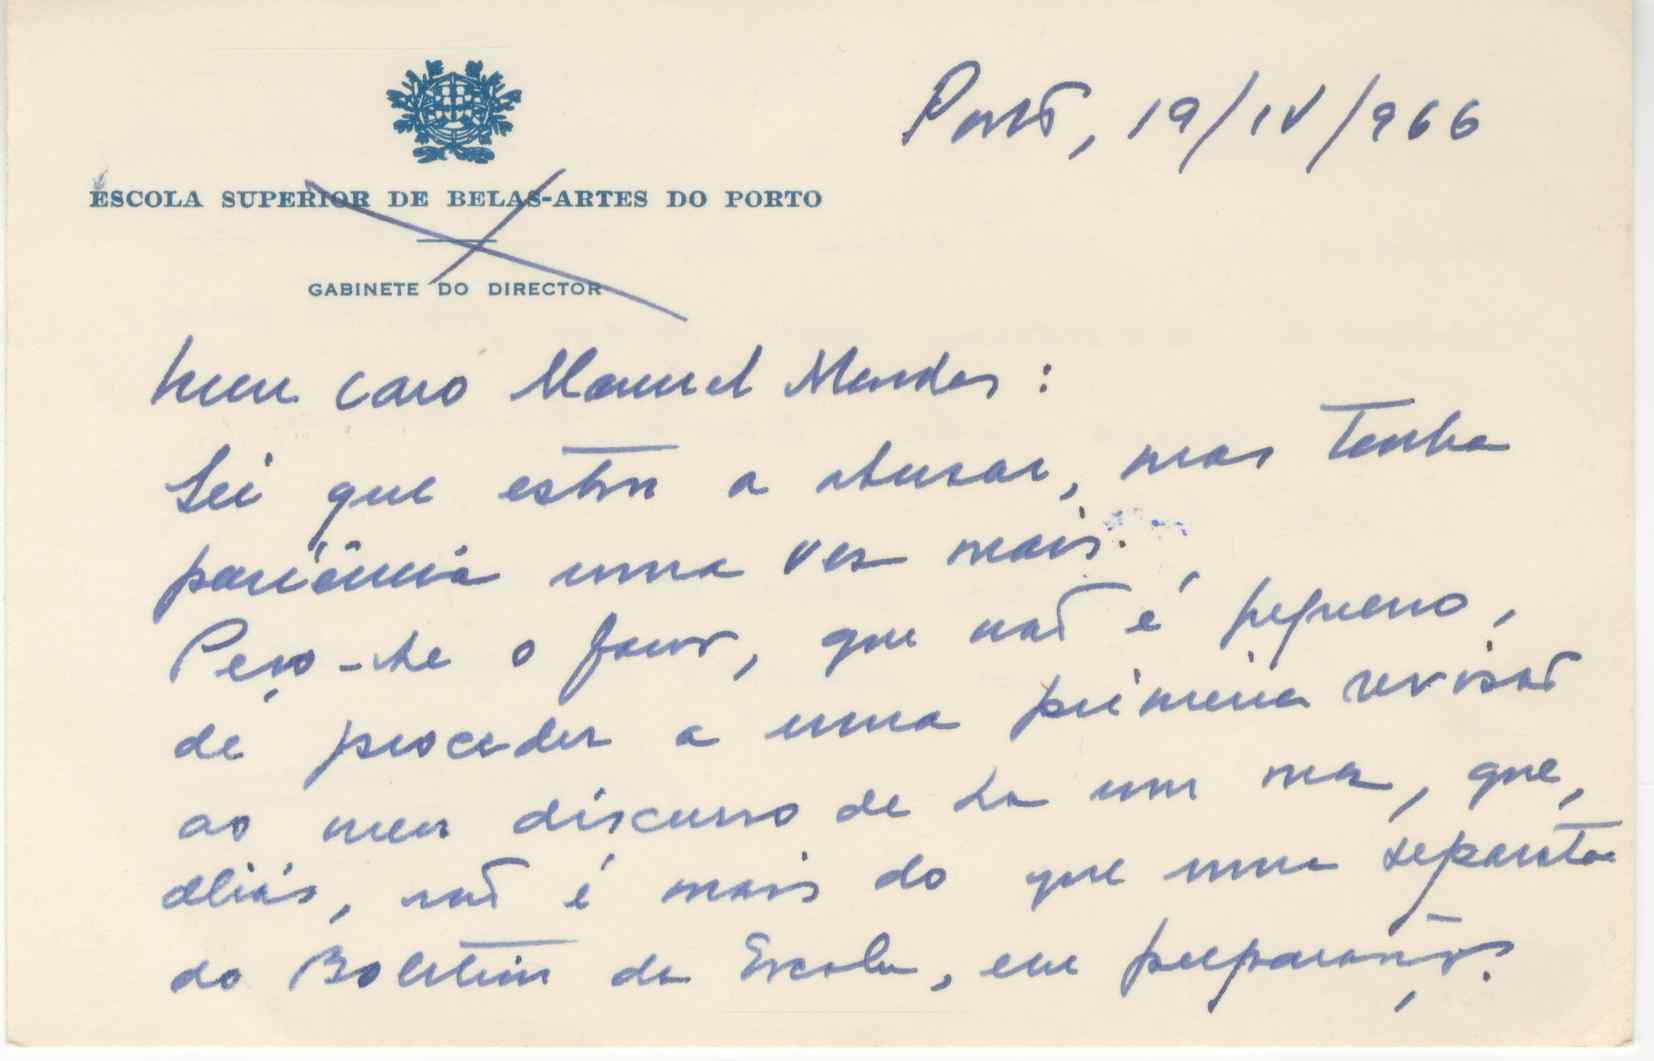 Porto, 19/IV/966
ESCOLA SUPERIOR DE BELAS-ARTES DO PORTO
GABINETE DO DIRECTOR
Meu caro Manuel Mendes:
Sei que estou a abusar, mas tenha
paciência uma vez mais.
Peço-lhe o favor, que não é pequeno,
de proceder a uma primeira revisão
ao meu discurso de há um mês, que,
aliás, não é mais do que uma separata
do Boletim da Escola, em preparação.